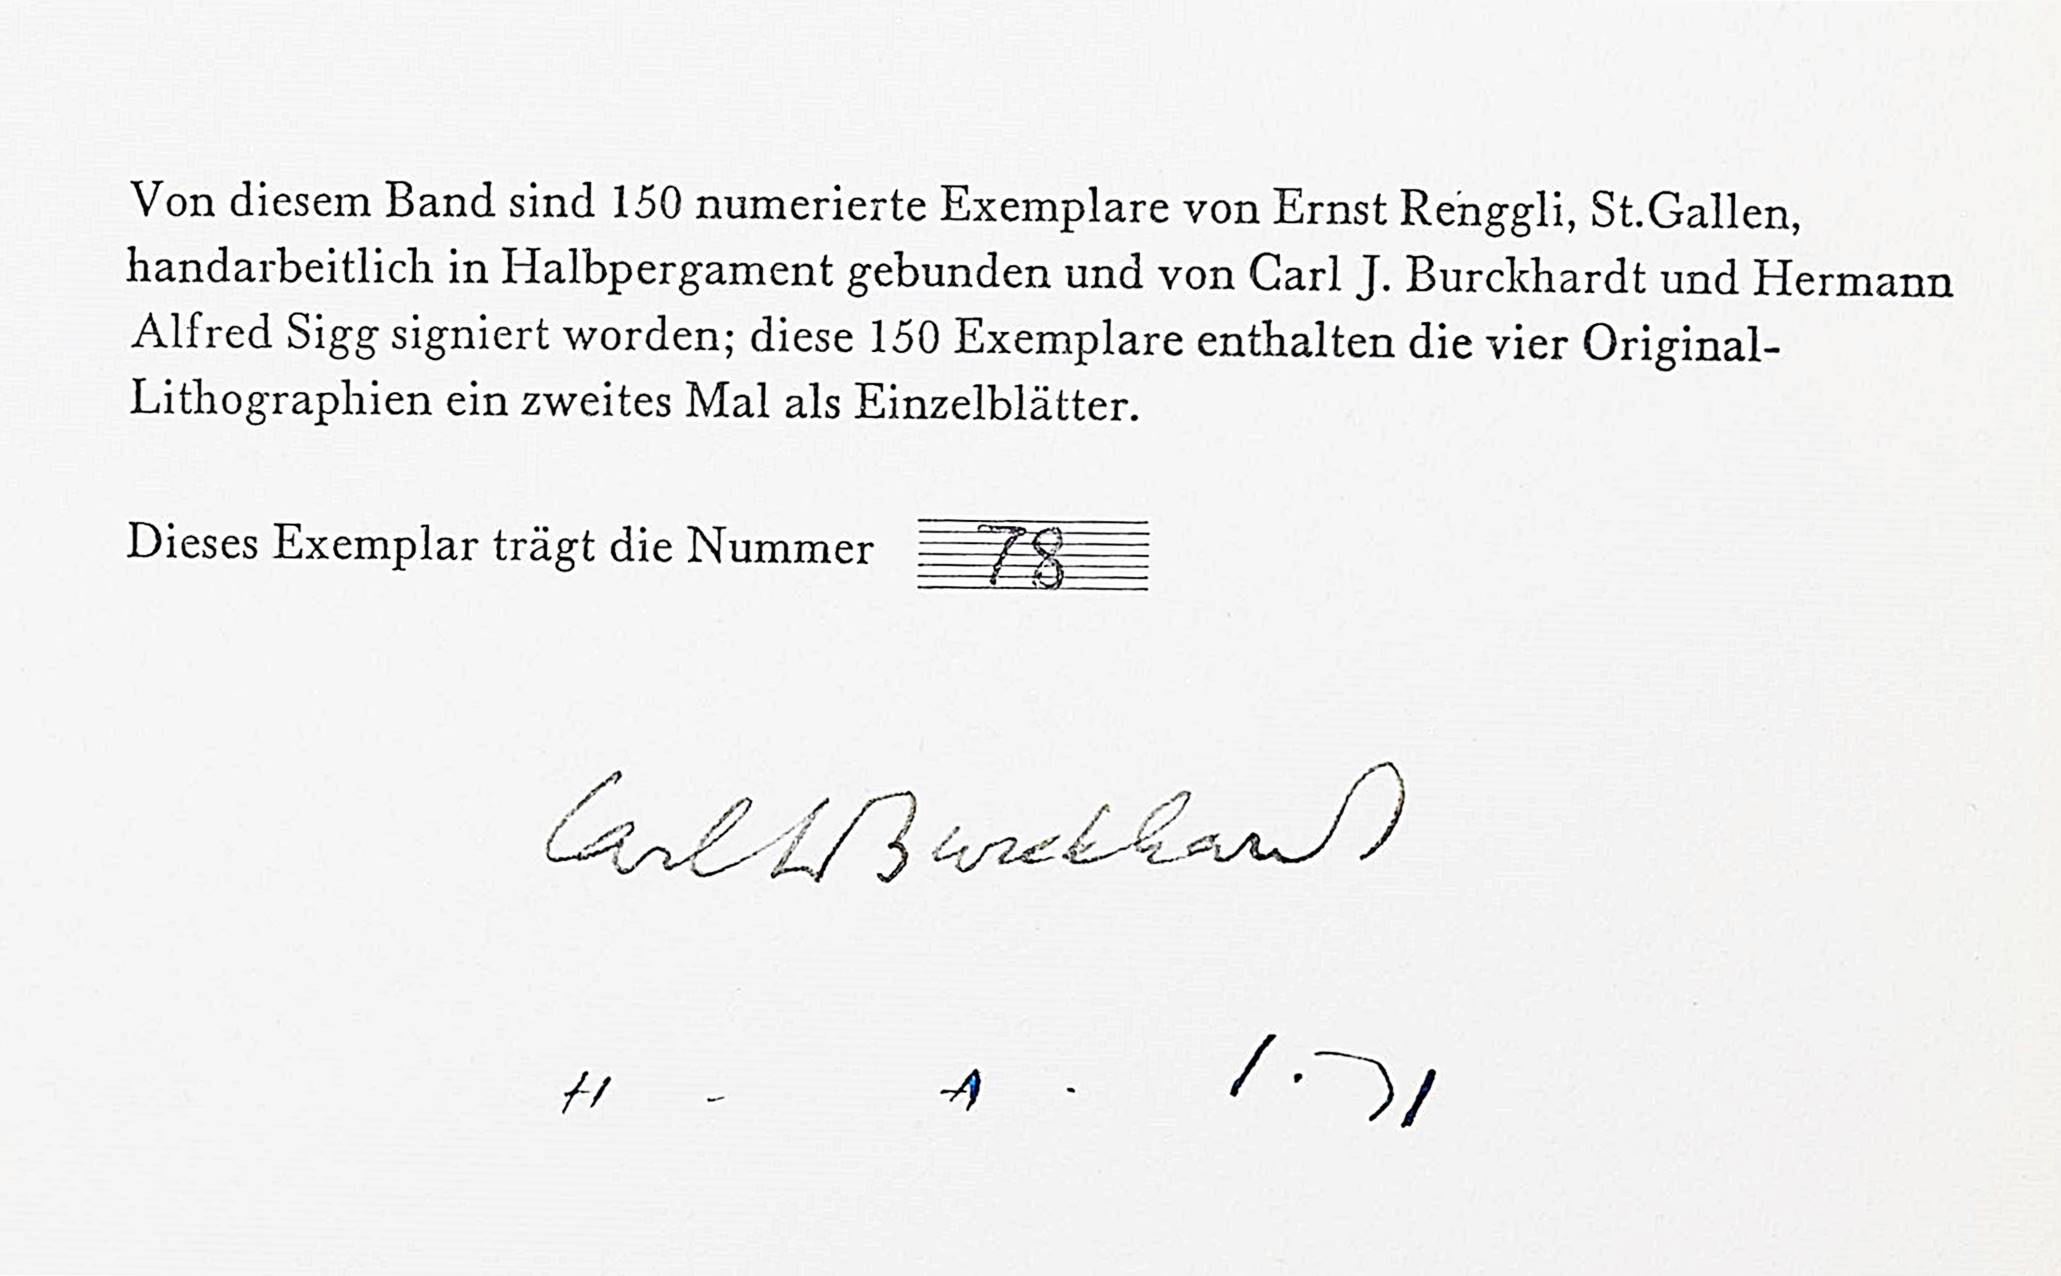 Von diesem Band sind 150 numerierte Exemplare von Ernst Renggli, St.Gallen,
handarbeitlich in Halbpergament gebunden und von Carl J. Burckhardt und Hermann
Alfred Sigg signiert worden; diese 150 Exemplare enthalten die vier Original-
Lithographien ein zweites Mal als Einzelblätter.
Dieses Exemplar trägt die Nummer 78
Carl J Burckhardt
H. A.